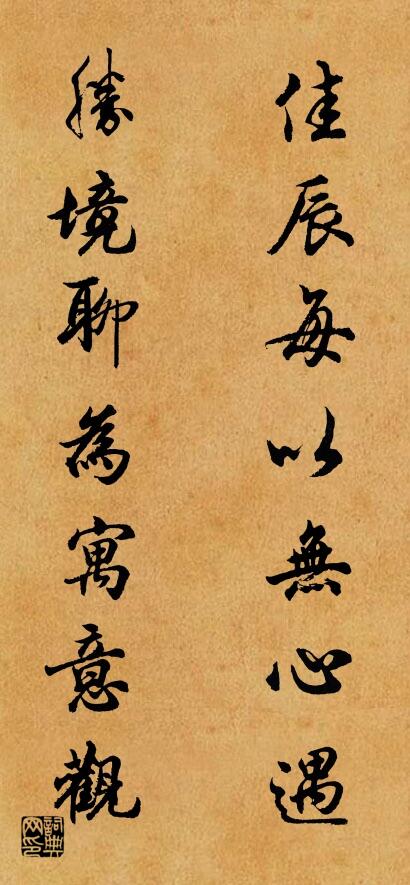 佳辰每以無心遇
勝境聊為寓意觀
詞典網印